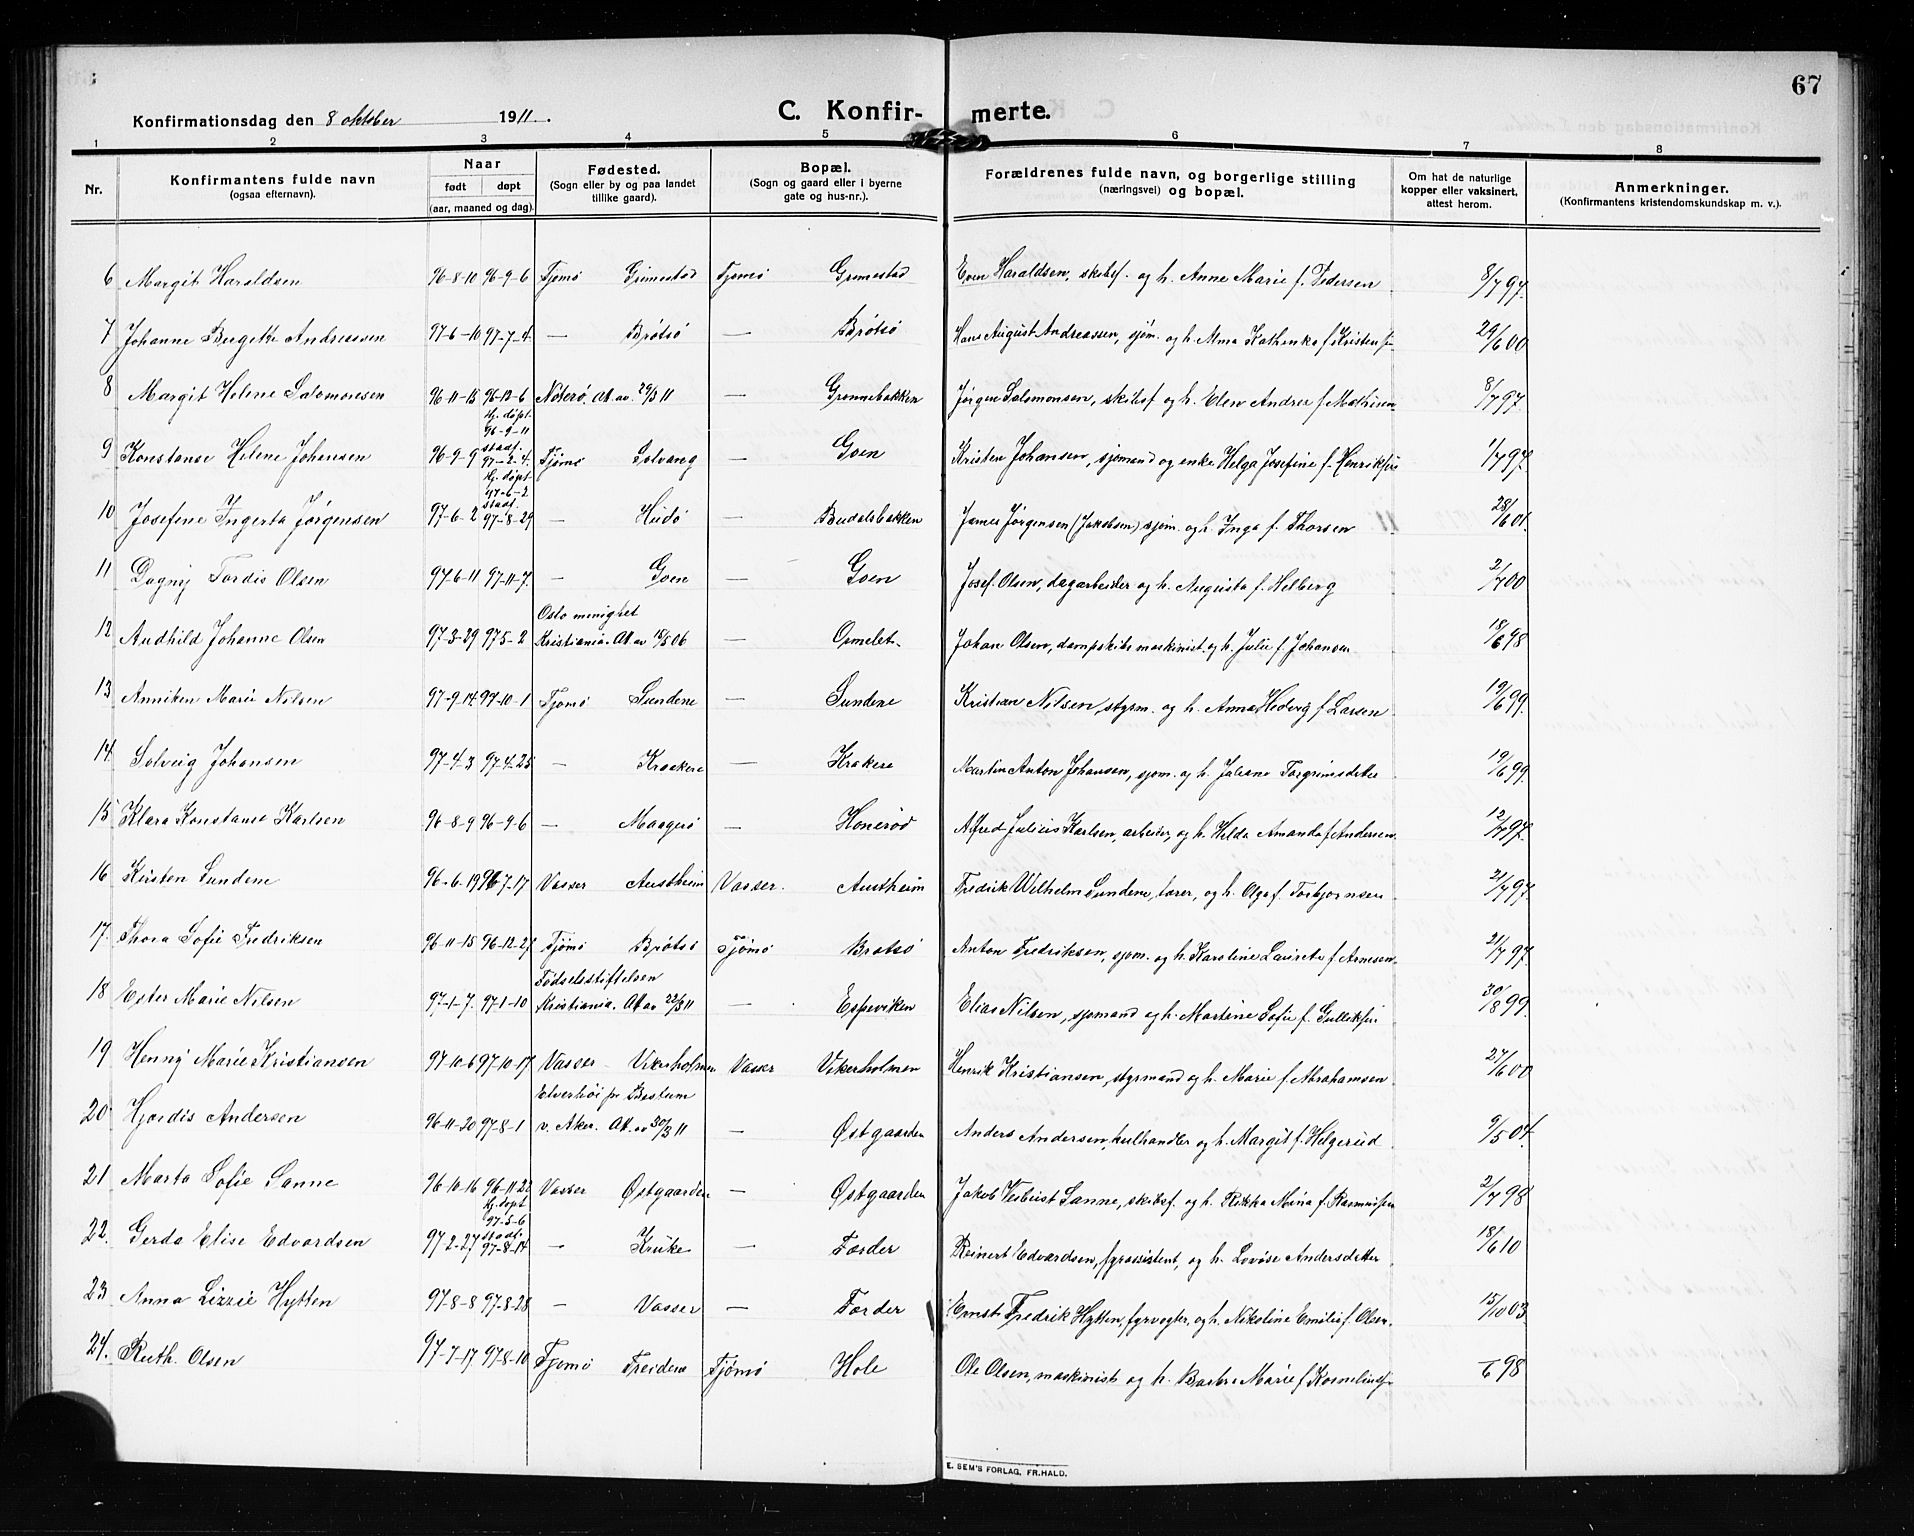 67
Konfirmationsdag den 8 oktober 1911. C. Konfirmerte.
1 2 3 4 5 6 7 8
Nr. Konfirmantens fulde navn (ogsaa efternavn). Naar født døpt (aar, maaned og dag). Fødested. (Sogn eller by og paa landet tillike gaard). Bopæl. (Sogn og gaard eller i byerne gate og hus-nr.). Forældrenes fulde navn, og borgerlige stilling (næringsvei) og bopæl. Om hat de naturlige kopper eller vaksinert, attest herom. Anmerkninger. (Konfirmantens kristendomskundskap m. v.).
6 Margit Haraldsen 96-8-10 96-9-6 Tjømø Grimestad Tjømø Grimestad Even Haraldsen, skibsf. og h. Anne Marie f. Pedersen 8/7 97.
7 Johanne Birgitte Andreassen 97-6-10 97-7-4 — Brøtsø — Brøtsø Hans August Andreassen, sjøm. og h. Alma Kathinka f. Kristens. 29/6 00
8 Margit Helene Salomonsen 96-11-15 96-12-6 Nøterø. At. av. 29/3 11 — Grønnebakken Jørgen Salomonsen, skibsf og h. Elen Andrea f. Mathisen 8/7 97.
9 Konstanse Helene Johansen 96-9-9 hj. døpt 96-9-11 stadf. 97-2-4. Tjømø Solvang — Goen Kristen Johansen, sjømand og enke Helga Josefine f. Henriksen 1/7 97.
10 Josefine Ingerta Jørgensen 97-6-2 hj. døpt 97-6-2 stadf. 97-8-29 — Hudø — Budalsbakken James Jørgensen (Jakobsen) sjøm. og h. Inga f. Thorsen 28/6 01.
11 Dagny Tordis Olsen 97-6-11 97-11-7. — Goen — Goen Josef Olsen, dagarbeider og h. Augusta f. Helberg 2/7 00
12 Audhild Johanne Olsen 97-3-29 97-5-2 Oslo menighet Kristiania. At av 15/5 06 — Ormelet Johan Olsen, dampskibsmaskinist og h. Julie f. Johansen 18/6 98
13 Anniken Marie Nilsen 97-9-14 97-10-1 Tjømø Sundene — Sundene Kristian Nilsen, styrm. og h. Anna Hedvig f. Larsen 19/6 99.
14 Solveig Johansen 97-4-3 97-4-25 — Kraakere — Krakere Martin Anton Johansen, sjøm. og h. Juliane Torgrimsdatter 19/6 99.
15 Klara Konstanse Karlsen 96-8-9 96-9-6 — Maagerø — Honerød Alfred Julius Karlsen, arbeider, og h. Hilda Amanda f. Andersen 12/7 97.
16 Kirsten Sundene 96-6-19 96-7-17 Vasser Austheim Vasser. Austheim Fredrik Wilhelm Sundene, lærer, og h. Olga f. Torbjørnsen 21/7 97.
17. Thora Sofie Fredriksen 96-11-15 96-12-27 Tjømø Brøtsø Tjømø Brøtsø Anton Fredriksen, sjøm. og h. Karoline Laurete f. Arnesen 21/7 97.
18 Ester Marie Nilsen 97-1-7. 97-1-10 Fødselsstiftelsen Kristiania. At av 22/3 11 — Espeviken Elias Nilsen, sjømand og h. Martine Sofie f. Gulliksen 30/8 99.
19 Henny Marie Kristiansen 97-10-6 97-10-17 Vasser Vikerholmen Vasser Vikerholmen Henrik Kristiansen, styrmand og h. Marie f. Abrahamsen 27/6 00
20 Hjørdis Andersen 96-11-20 97-8-1 Elverhøi pr Bestum v. Aker. At. av 30/3 11 — Østgaarden Anders Andersen, kulhandler og h. Margit f. Helgerud 9/5 04.
21 Marta Sofie Sanne 96-10-16 96-11-22 Vasser Østgaarden — Østgaarden Jakob Sanne, skibsf. og h. Rikka Maria f. Rasmussen 2/7 98
22. Gerda Elise Edvardsen 97-2-27 hj. døpt 97-5-6 stadf. 97-8-14 — Kruke — Færder Reinert Edvardsen, fyrassistent, og h. Lovise Andersdatter 18/6 10
23 Anna Lizzie Hytten 97-8-8 97-8-28 — Vasser — Færder Ernst Fredrik Hytten, fyrvogter, og h. Nikoline Emilie f. Olsen 15/10 03
24. Ruth. Olsen 97-7-17 97-8-10 Tjømø Treidene Tjømø Hole Ole Olsen, maskinist og h. Barbra Marie f. Korneliussen 98
E. SEM'S FORLAG, FR.HALD.